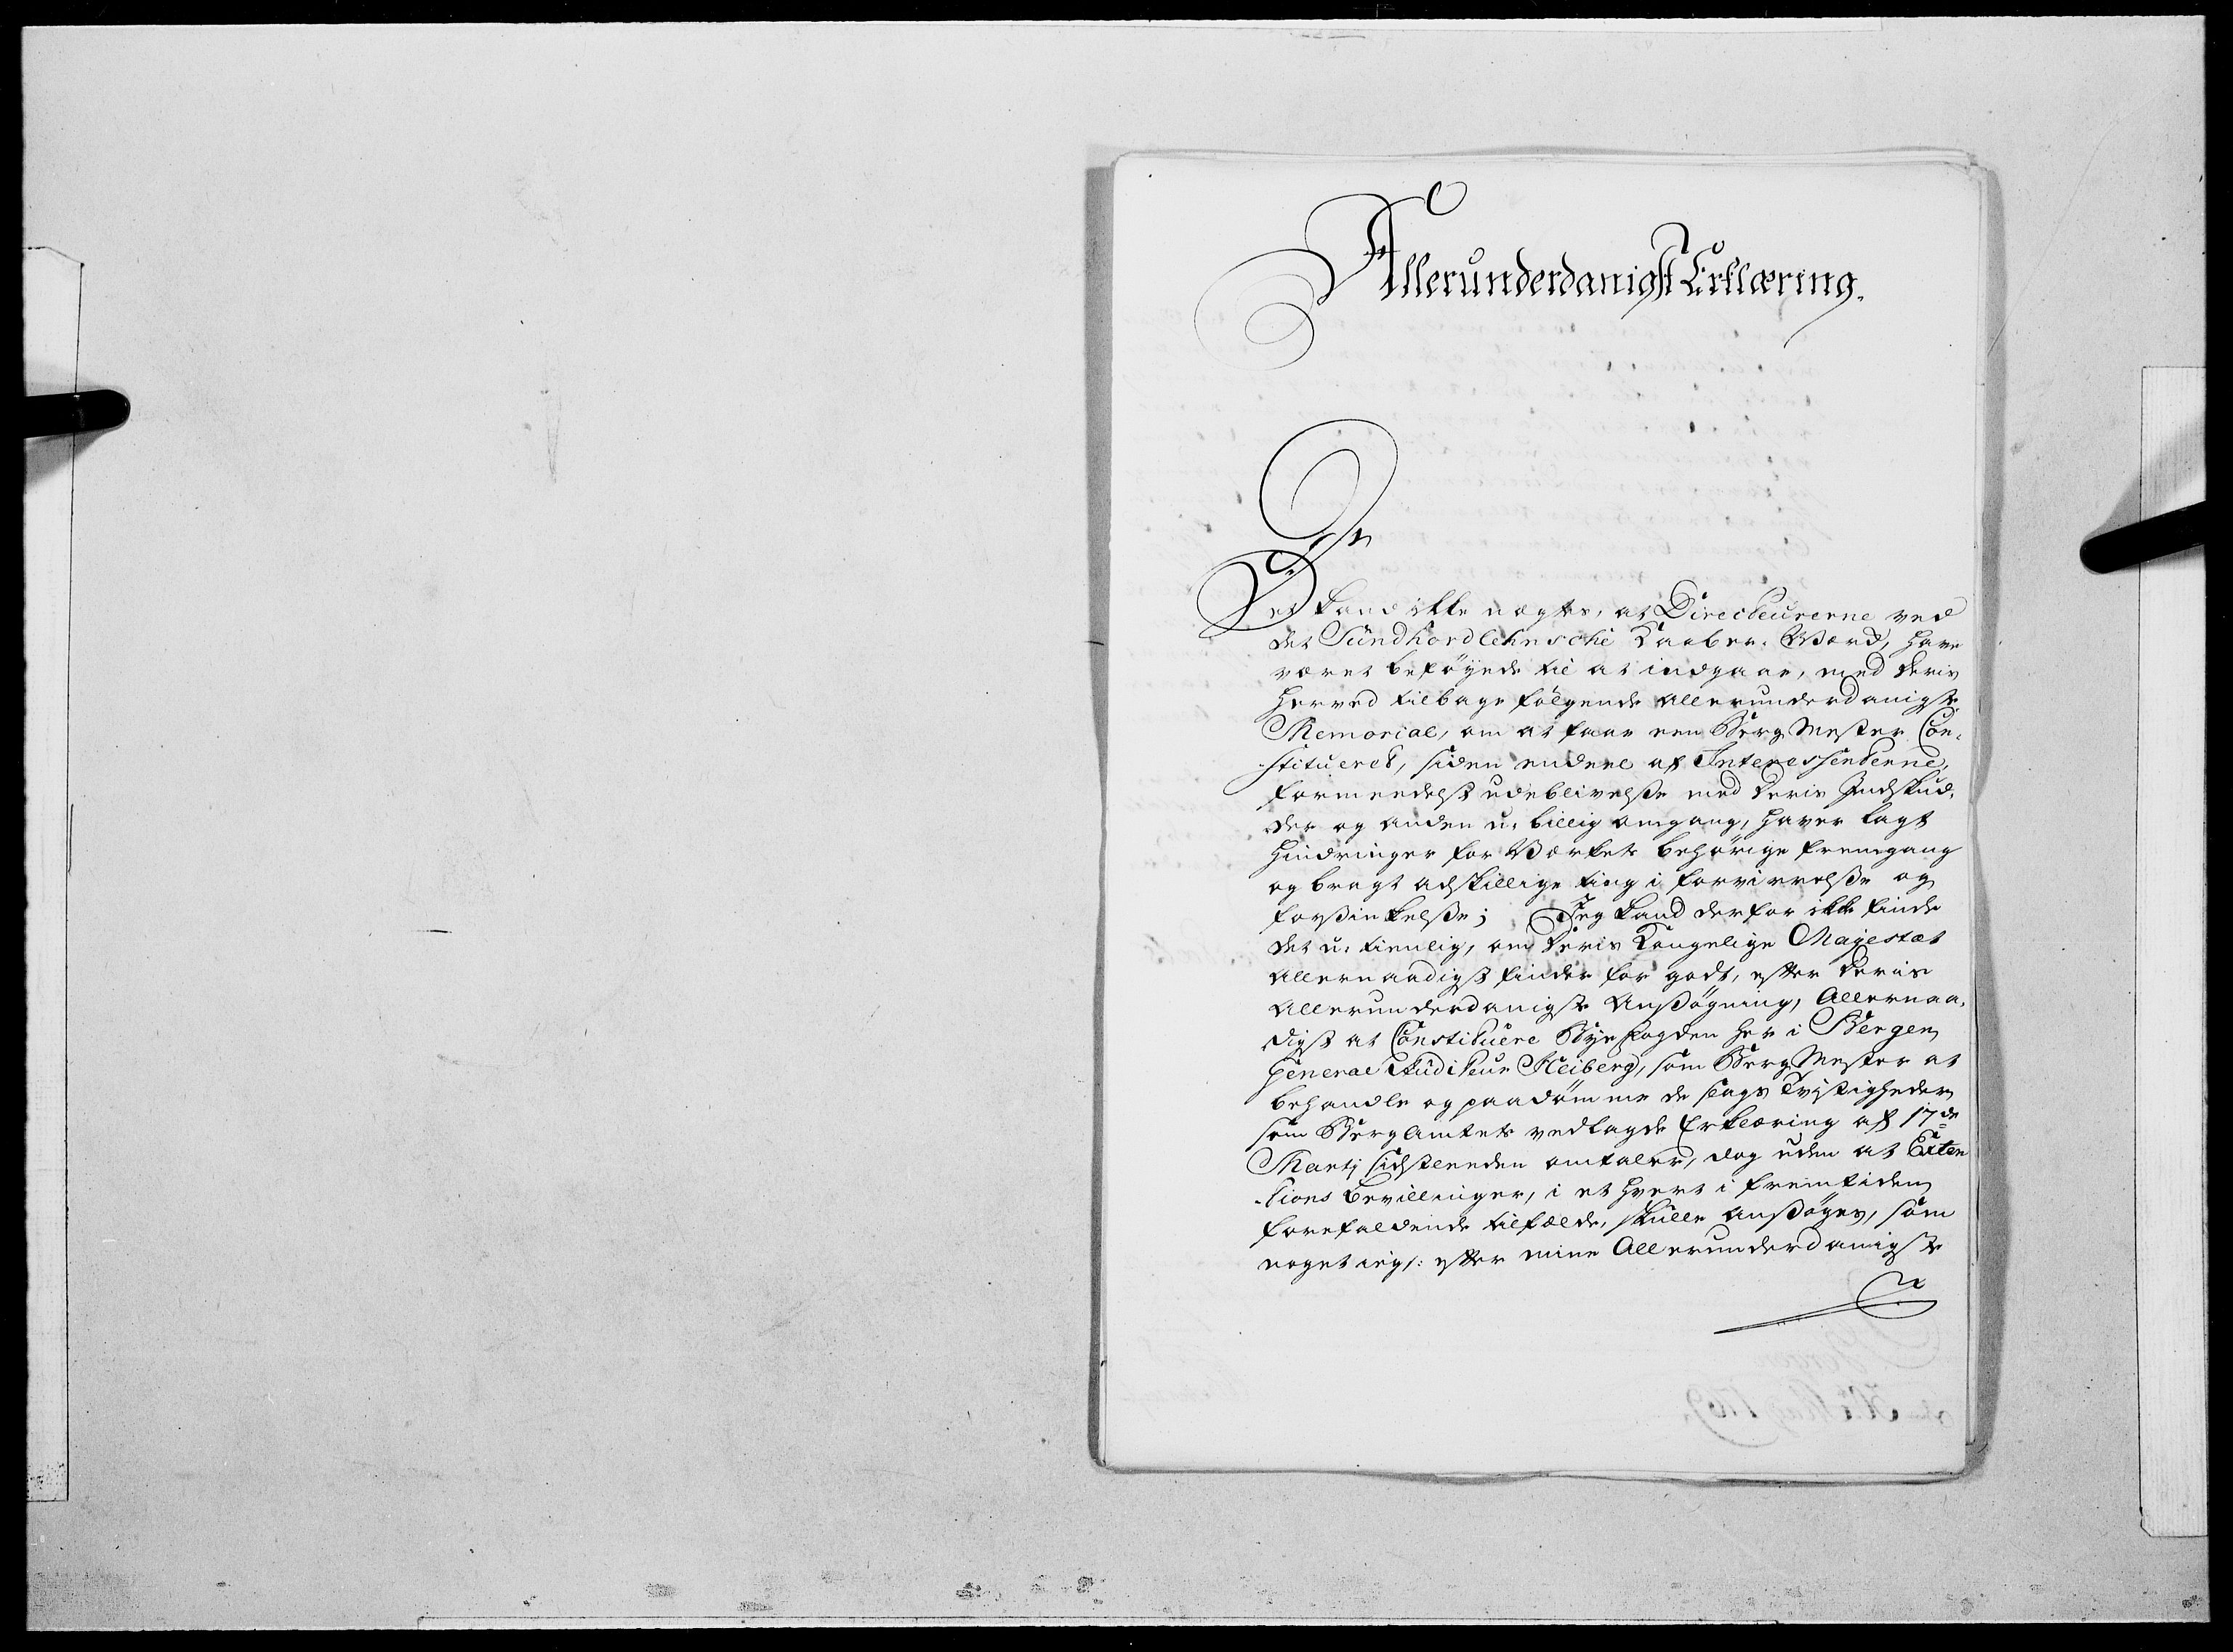 Allerunderdanigst Erklæring.
Det kand ikke nægtes, at Directeurerne ved
det Sundhordlehnsche Kaaber-Værk, have
været beføyede til at indgaae, med deris
herved tilbage følgende allerunderdanigste
Memorial, om at faae een Berg Mester Con-
stitueret, siden endeel af Interessenterne,
formeedelst udeblivelße med deris Indskud-
der og anden u-billig omgang, haver lagt
hindringer for Værkets behørige fremgang
og bragt adskillige ting i forvirrelße og
forßinkelße; Jeg kand derfor ikke finde
det u-tienlig, om Deris Kongelige Majestæt
allernaadigst finder for godt, efter deris
allerunderdanigste Anßøgning, allernaa-
digst at Constituere Byefogden her i Bergen
General Auditeur Heiberg, som Berg Mester at
behandle og paadømme de slags Tvistigheder
som Berg Amtets vedlagde Erklæring af 17de
Martj sidstleeden omtaler, dog uden at Exten-
tions bevillinger, i et hvert i fremtiden
forefaldende tilfælde, skulle anßøges, som
noget ieg/: efter mine Allerunderdanigste